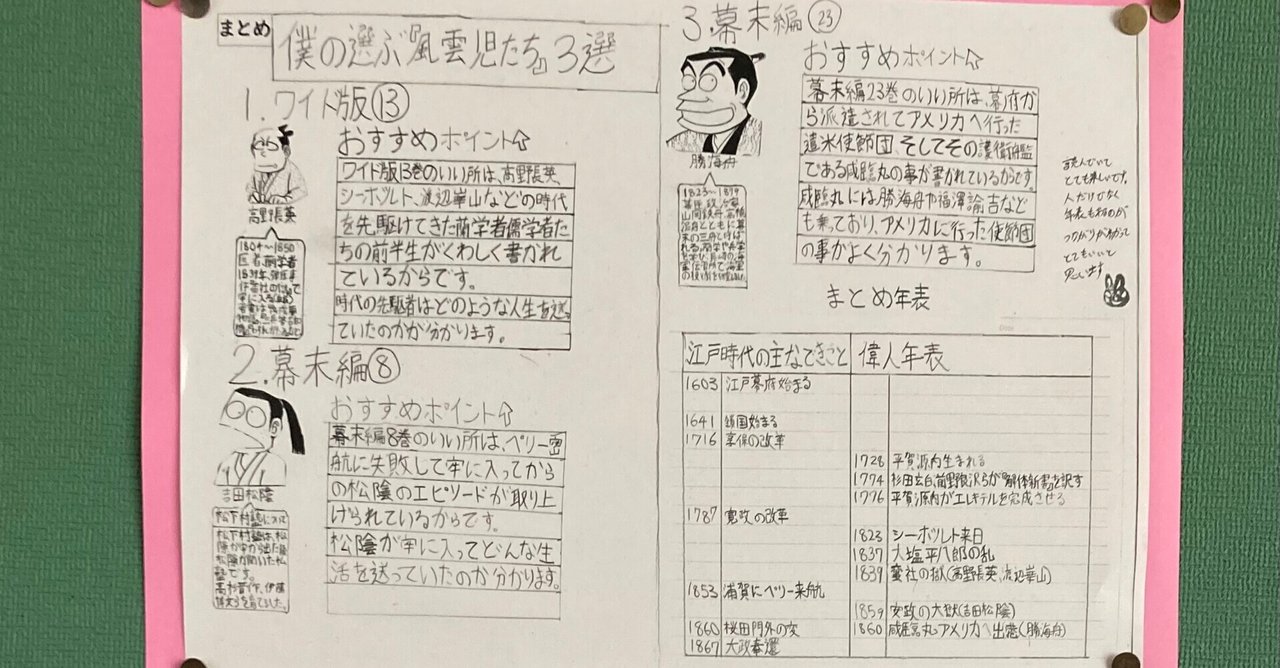 まとめ
僕の選ぶ『風雲児たち』3選
1.ワイド版⑬
おすすめポイント⇧
高野長英
1804〜1850
医者、蘭学者
ワイド版13巻のいい所は、高野長英、
シーボルト、渡辺崋山などの時代
を先駆けてきた蘭学者儒学者た
ちの前半生がくわしく書かれ
ているからです。
時代の先駆者はどのような人生を送っ
ていたのかが分かります。
2.幕末編⑧
おすすめポイント⇧
吉田松陰
松下村塾について
松下村塾は、松
陰が
松陰が開いた私
塾です。
高杉晋作、伊藤
博文らを育てました。
幕末編8巻のいい所は、ペリー密
航に失敗して牢に入ってから
の松陰のエピソードが取り上
げられているからです。
松陰が牢に入ってどんな生
活を送っていたのか分かります。
3.幕末編㉓
おすすめポイント⇧
勝海舟
1823〜1899
幕臣、政治家
山岡鉄舟、高橋
泥舟とともに幕
末の三舟と呼ば
れる。
幕末編23巻のいい所は、幕府か
ら派遣されてアメリカへ行った
遣米使節団そしてその護衛艦
である咸臨丸の事が書かれているからです。
咸臨丸には勝海舟や福澤諭吉など
も乗っており、アメリカに行った使節団
の事がよく分かります。
読んでいて
とても楽しいです。
人だけでなく
年表もあるので
つながりがわかって
とてもいいと
思います
まとめ年表
江戸時代の主なできごと 偉人年表
1603 江戸幕府始まる
1641 鎖国始まる
1716 享保の改革
1728 平賀源内生まれる
1774 杉田玄白、前野良沢らが『解体新書』を訳す
1776 平賀源内がエレキテルを完成させる
1787 寛政の改革
1823 シーボルト来日
1837 大塩平八郎の乱
1839 蛮社の獄(高野長英、渡辺崋山)
1853 浦賀にペリー来航
1859 安政の大獄(吉田松陰)
1860 桜田門外の変 1860 咸臨丸アメリカへ出港(勝海舟)
1867 大政奉還